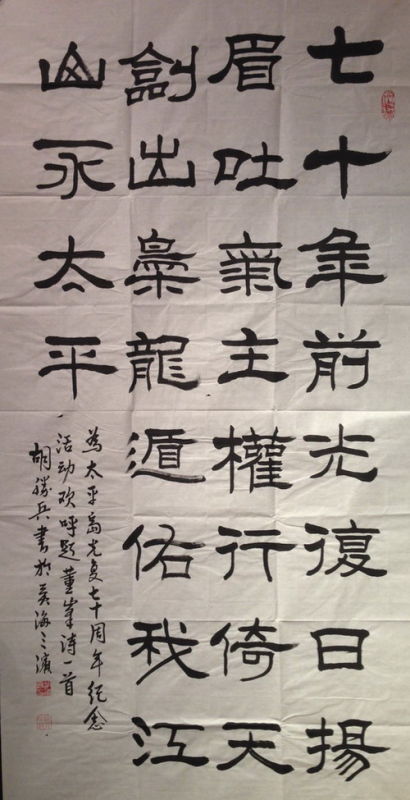 七十年前光復日揚
眉吐氣主權行倚天
劍出梟龍遁佑我江
山永太平
為太平島光复七十周年纪念
活动欢呼题董峯诗一首
胡勝兵書於黃海之濱